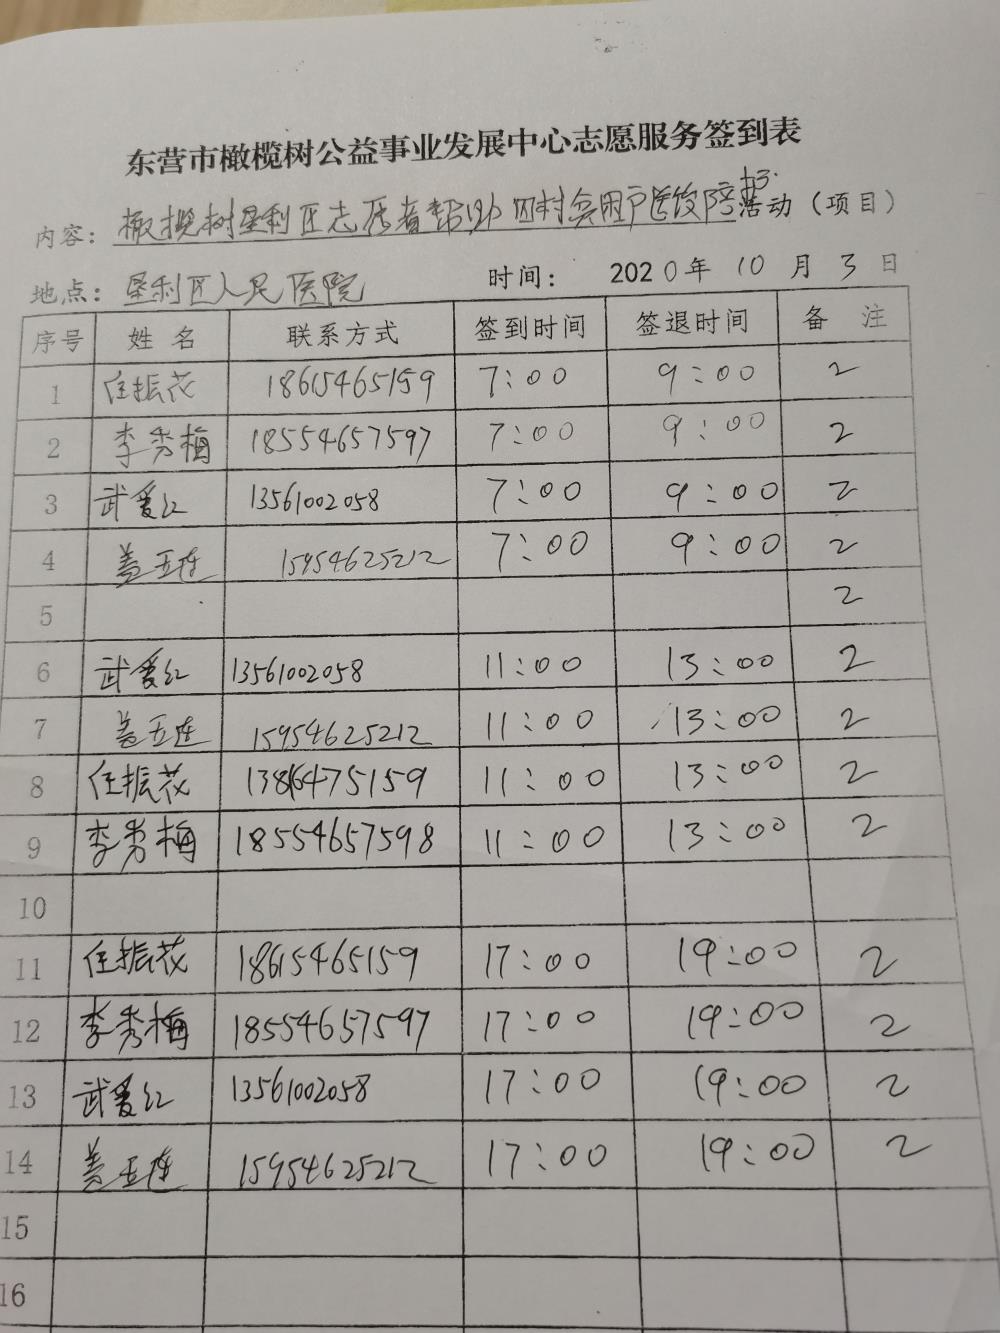 东营市橄榄树公益事业发展中心志愿服务签到表
内容：橄榄树垦利区志愿者帮助困难户送饭陪护活动（项目）
地点：垦利区人民医院 时间：2020年10月3日
序号 姓名 联系方式 签到时间 签退时间 备注
1 任振花 18615465159 7:00 9:00 2
2 李秀梅 18554657597 7:00 9:00 2
3 武爱红 13561002058 7:00 9:00 2
4 盖玉莲 15954625212 7:00 9:00 2
5 2
6 武爱红 13561002058 11:00 13:00 2
7 盖玉莲 15954625212 11:00 13:00 2
8 任振花 1386475159 11:00 13:00 2
9 李秀梅 18554657598 11:00 13:00 2
10
11 任振花 18615465159 17:00 19:00 2
12 李秀梅 18554657597 17:00 19:00 2
13 武爱红 13561002058 17:00 19:00 2
14 盖玉莲 15954625212 17:00 19:00 2
15
16